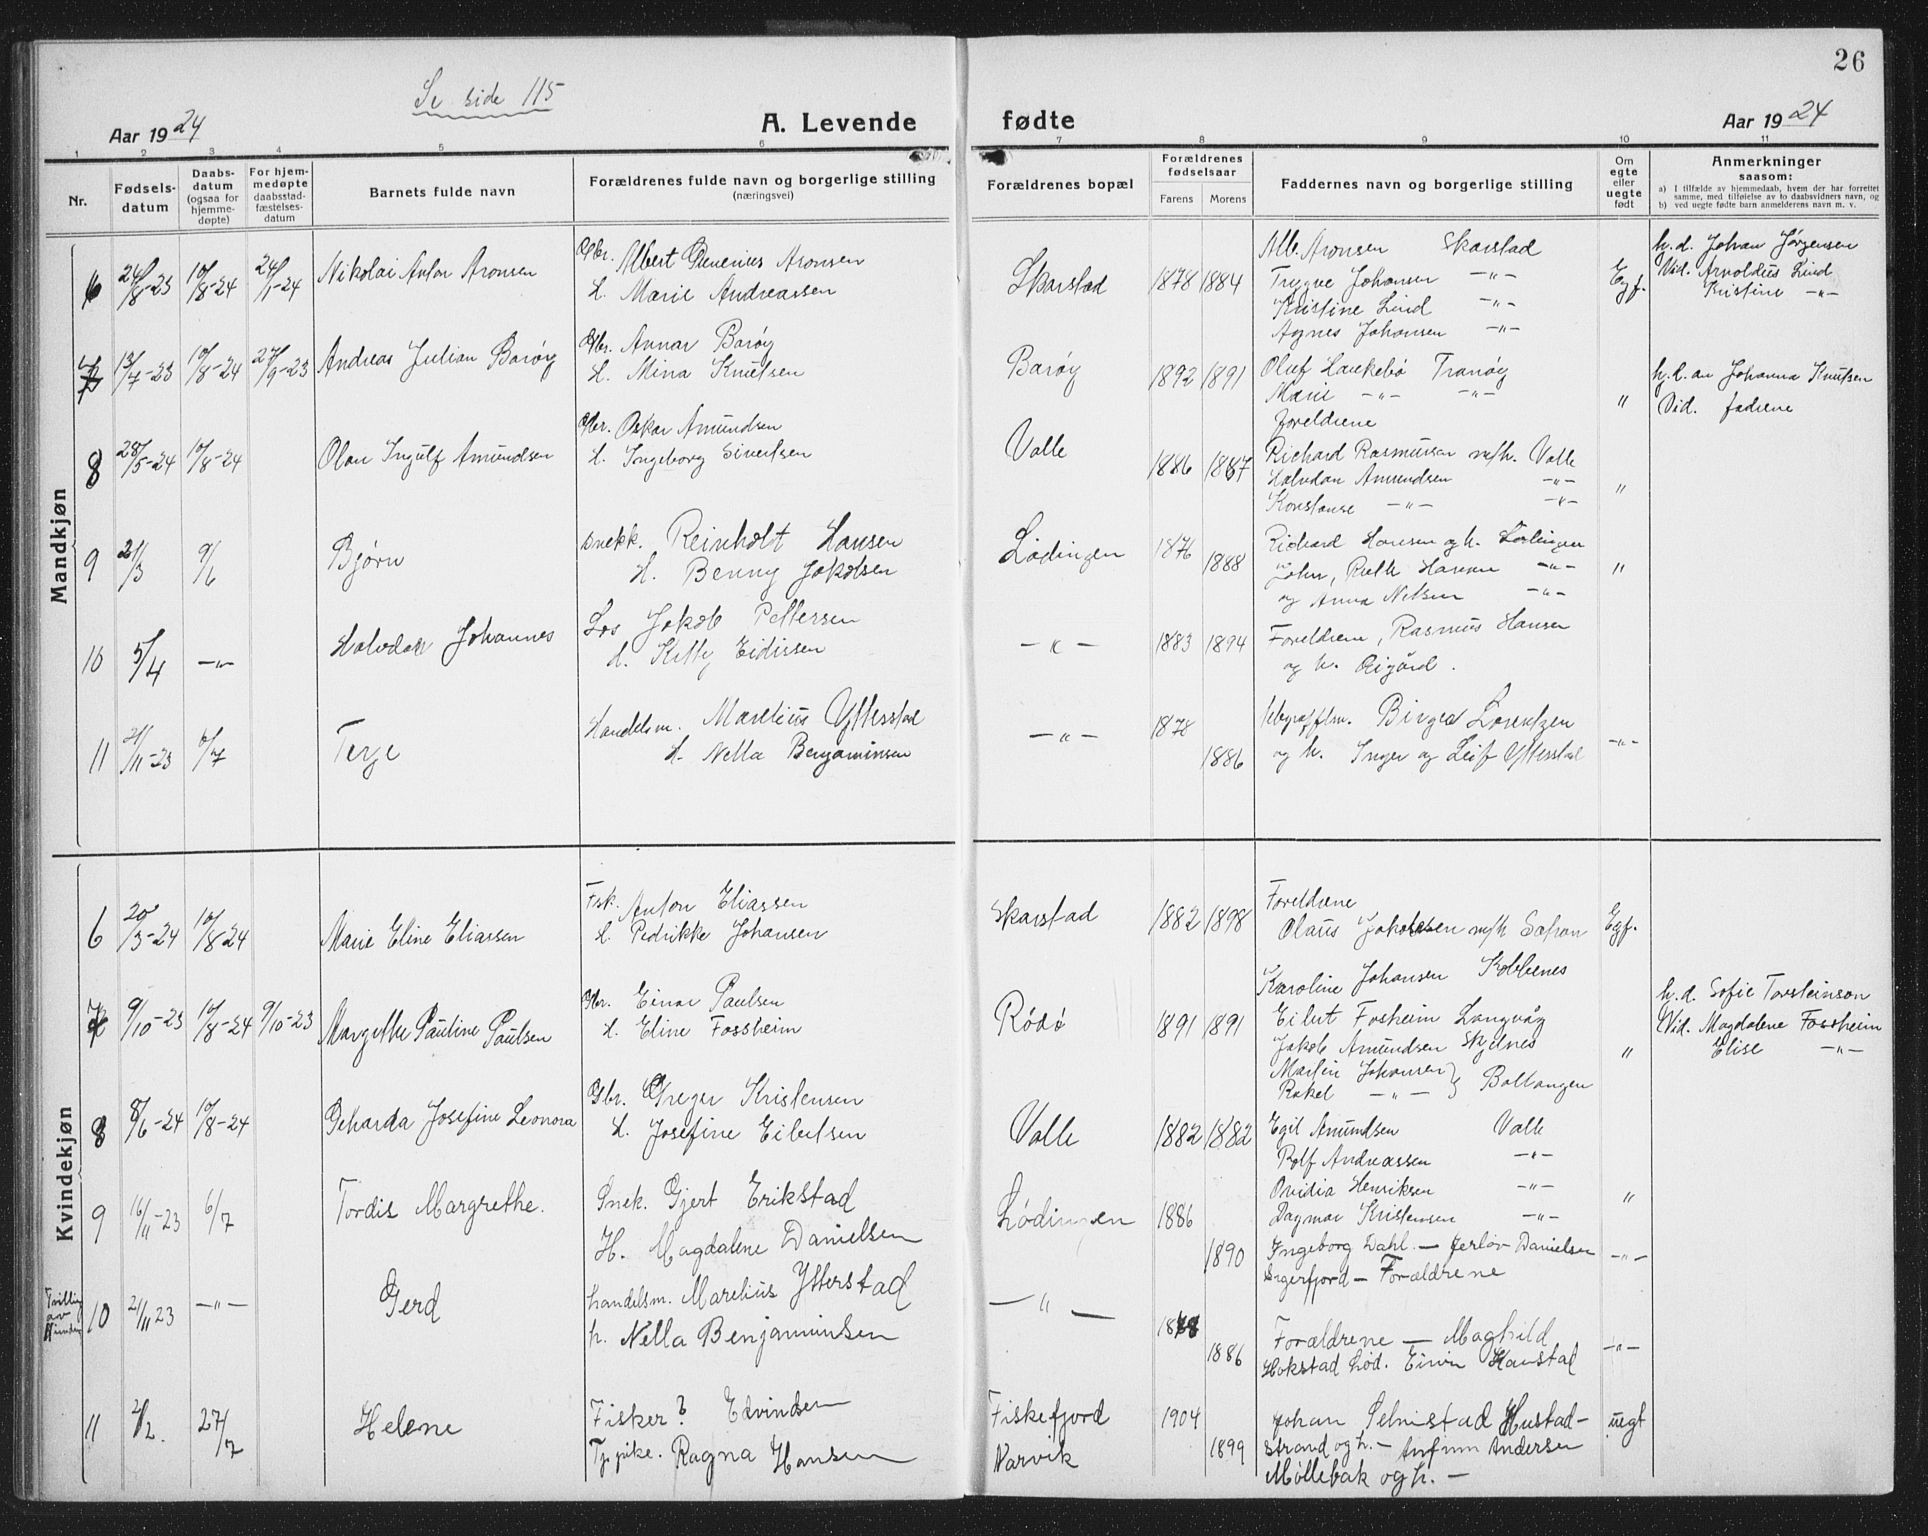 26
Se side 115
Aar 1924
A. Levende fødte
Aar 1924
1 2 3 4 5 6 7 8 9 10 11
Nr.
Fødselsdatum
Daabsdatum (ogsaa for hjemmedøpte)
For hjemmedøpte daabsstadfæstelsesdatum
Barnets fulde navn
Forældrenes fulde navn og borgerlige stilling (næringsvei)
Forældrenes bopæl
Forældrenes fødselsaar
Farens Morens
Faddernes navn og borgerlige stilling
Om egte eller uegte født
Anmerkninger saasom:
a) I tilfælde av hjemmedaab, hvem der har forrettet samme, med tilføielse av to daabsvidners navn, og
b) ved uegte fødte barn anmelderens navn m. v.
Mandkjøn
6 24/8-23 10/8-24 24/1-24 Nikolai Anton Aronsen
Gbr. Albert Aronsen
H. Marie Andreassen
Skarstad 1878 1884
Alb. Aronsen Skarstad
Trygve Johansen -"-
Kristine Lind -"-
Agnes Johansen -"-
Egf.
h.d. Johan Jørgensen
Vid. Arnoldus Lind
Kristine -"-
7 13/7-23 10/8-24 27/9-23 Andreas Julian Barøy
Gbr. Annar Barøy
H. Mina Knutsen
Barøy 1892 1891
Oluf Haukebø Tranøy
Marie -"- -"-
foreldrene
"
h.d. av Johanna Knutsen
Vid. fadrene
8 28/5-24 10/8-24 Olav Ingulf Amundsen
Gbr. Oskar Amundsen
H. Ingeborg Sivertsen
Valle 1886 1887
Richard Rasmussen m/h. Valle
Halvdan Amundsen -"-
Konstanse -"- -"-
"
9 21/3 9/6 Bjørn
Snekk. Reinholdt Hansen
H. Benny Jakobsen
Lødingen 1876 1888
Richard Hansen og h. Lødingen
John, Ruth Hansen -"-
og Anna Nilsen -"-
"
10 5/4 -"- Halvdan Johannes
Los Jakob Pettersen
H. Kitty Eidissen
-"- 1883 1894
Foreldrene, Rasmus Hansen
og h. Rigård.
11 21/11-23 6/7 Terje
Handelsm. Marelius Ytterstad
H. Nella Benjaminsen
-"- 1878 1886
telegrafflm. Birger Lorentzen
og h. Inger og Leif Ytterstad
-"-
Kvindekjøn
6 20/3-24 10/8-24 Marie Eline Eliassen
Fisk. Anton Eliassen
H. Pedrikke Johansen
Skarstad 1882 1898
Foreldrene
Olaus Jakobsen m/h
Karoline Johansen Kobbenes
Egf.
7 9/10-23 10/8-24 9/10-23 Margithe Pauline Paulsen
Gbr. Einar Paulsen
H. Eline Fossheim
Rødø 1891 1891
Eilert Fosheim Langvåg
Jakob Amundsen Skjelnes
Martin Johansen } Ballangen
Rakel -"-
"
h.d. Sofie Torsteinson
Vid. Magdalene Fossheim
Elise -"-
8 8/6-24 10/8-24 Geharda Josefine Leonora
Gbr. Greger Kristensen
H. Josefine Eilertsen
Valle 1882 1882
Egil Amundsen Valle
Rolf Andreassen -"-
Ovidia Henriksen -"-
Dagmar Kristensen -"-
"
9 16/11-23 6/7 Tordis Margrethe.
Snek. Gjert Erikstad
H. Magdalene Danielsen
Lødingen 1886 1890
Ingeborg Dahl. — Jerlov Danielsen
Sigerfjord — Forældrene
-"-
Tvilling av
10 21/11 23 -"- Gerd
handelsm. Marelius Ytterstad
h. Nella Benjaminsen
-"- 1878 1886
Forældrene — Maghild
Hokstad Lød. Einin Hanstad
-"-
11 2/2. 27/7 Helene
Fisker ? Edvindsen
Tj.pike. Ragna Hansen
Fiskefjord
Narvik
1904 1899
Johan Selnistad Hustad-
strand og h. — Anfinn Andersen
Møllebak og h. —
uegt